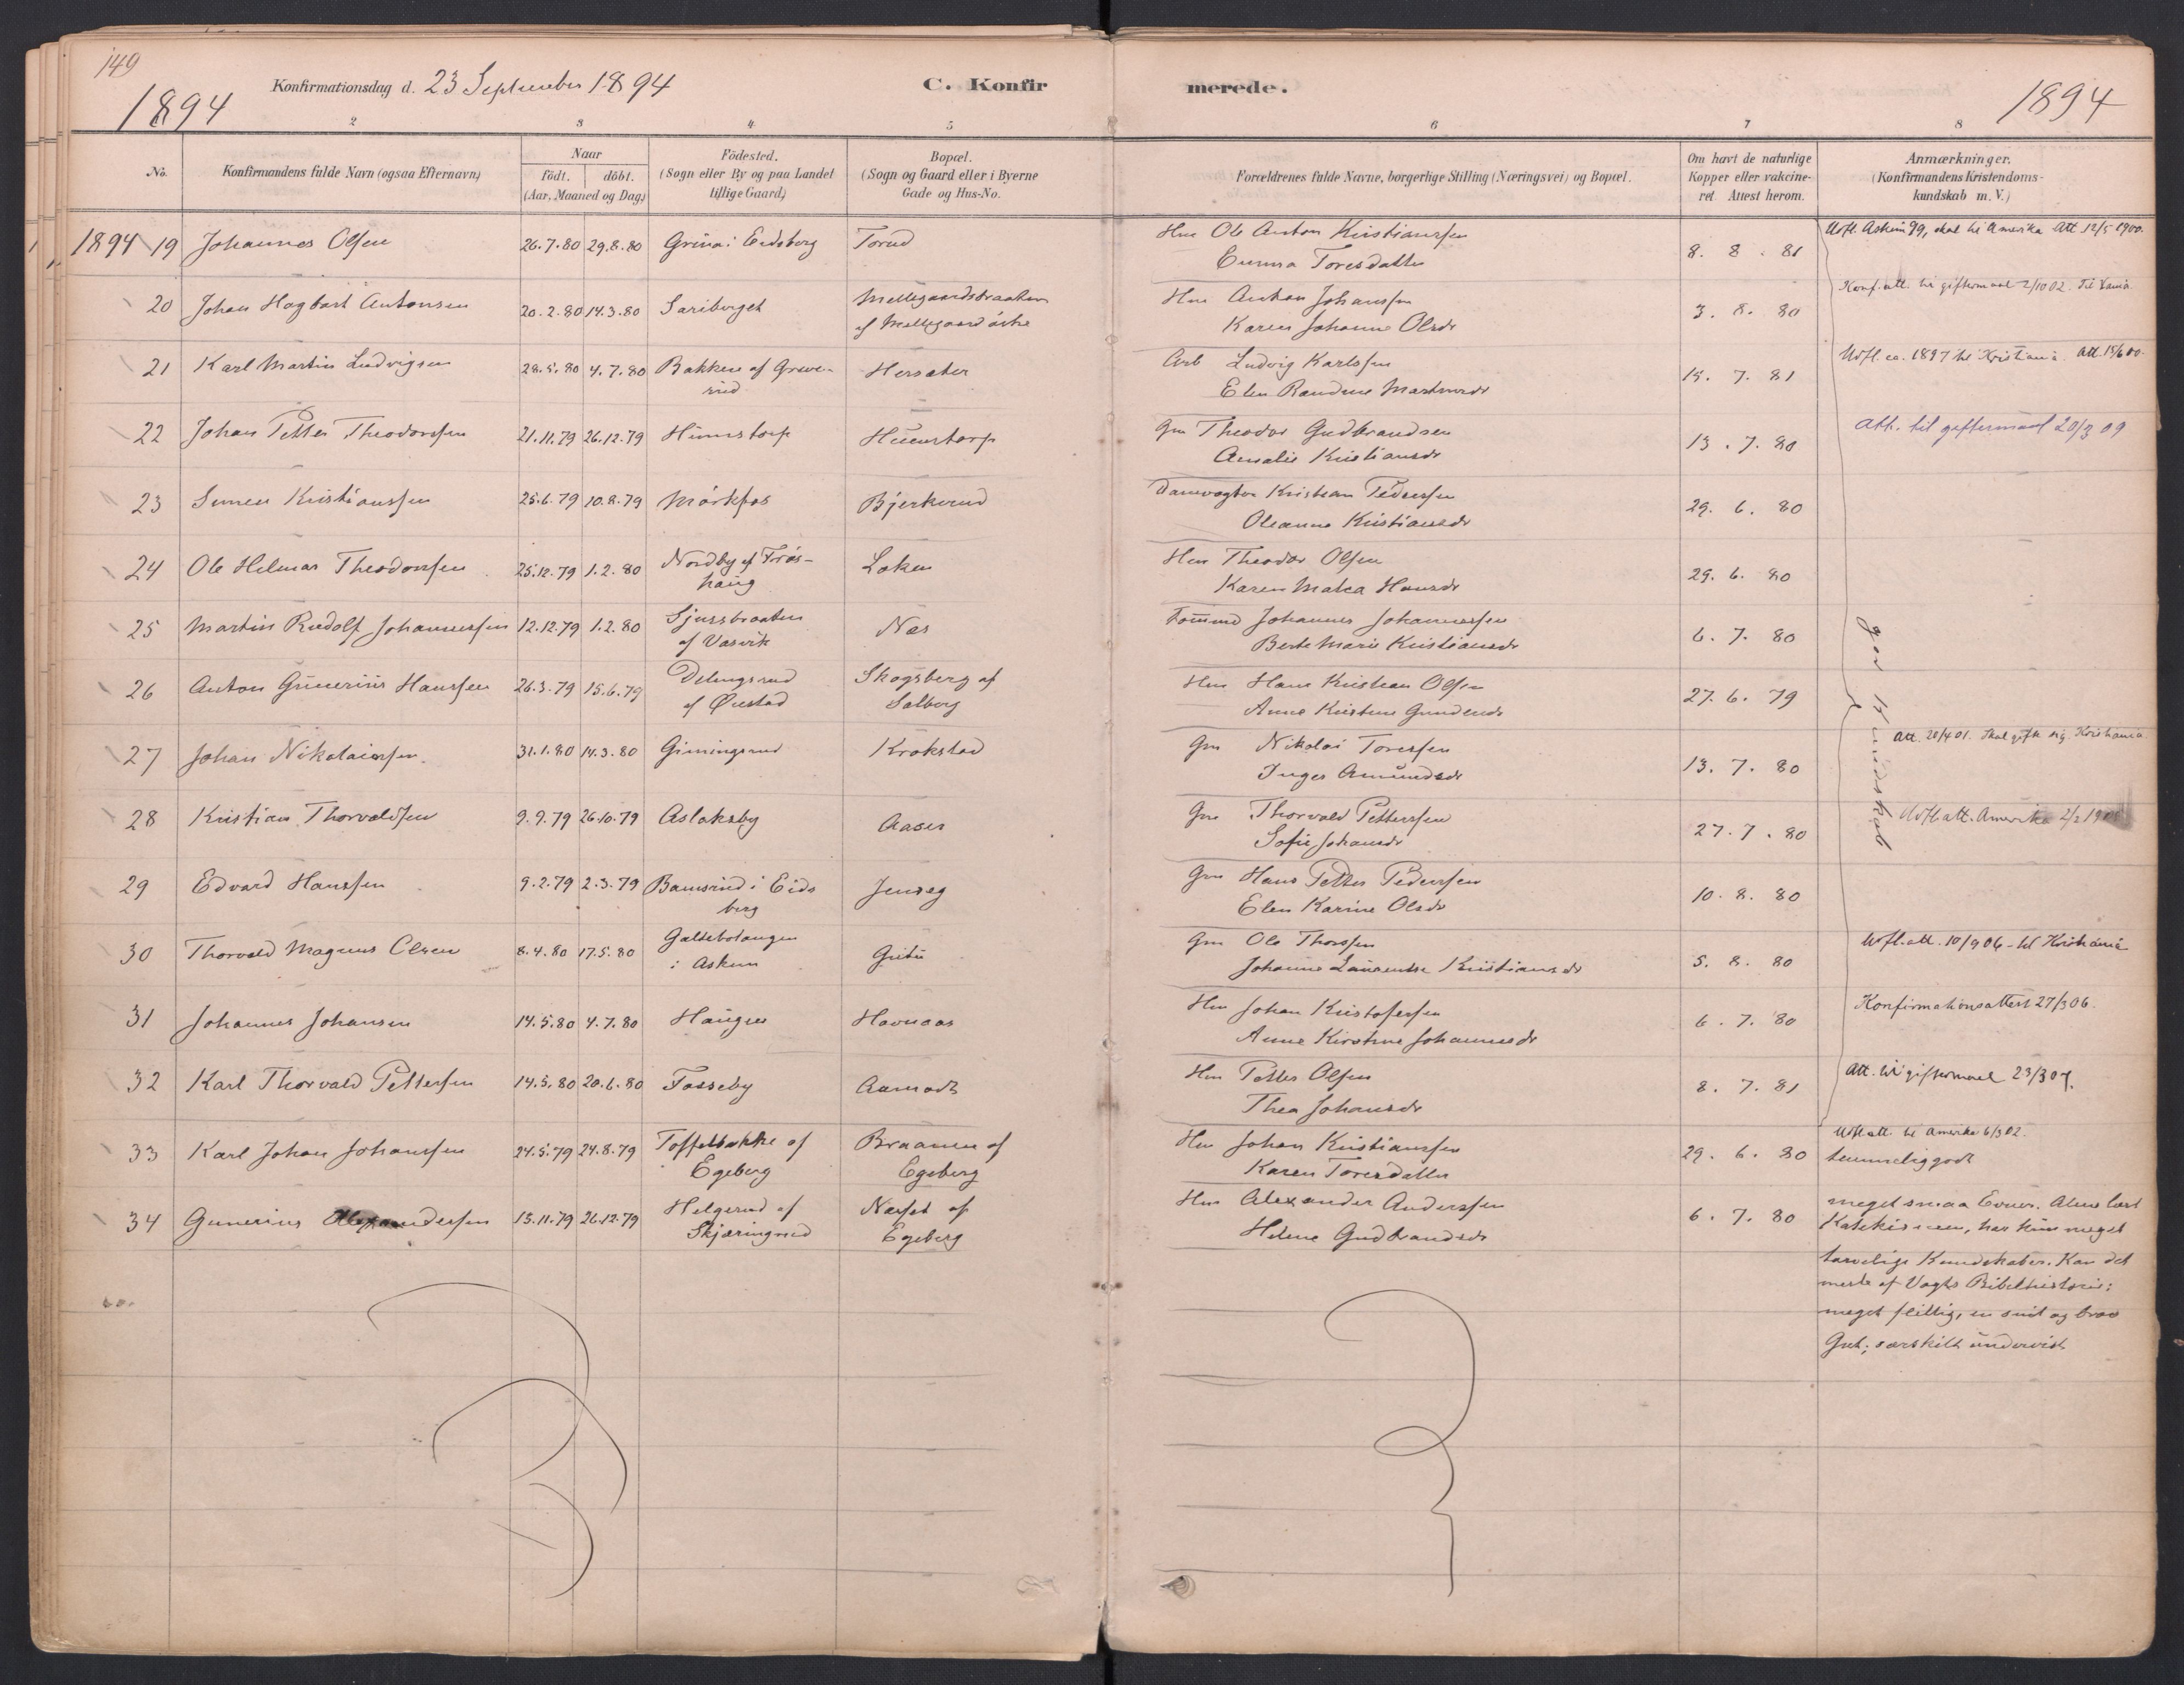 149
1894
Konfirmationsdag d. 23 September 1894
C. Konfir
merede.
1894
2 3 4 5 6 7 8
No.
Konfirmandens fulde Navn (ogsaa Efternavn)
Naar
födt. döbt.
(Aar, Maaned og Dag)
Födested.
(Sogn eller By og paa Landet
tillige Gaard)
Bopæl.
(Sogn og Gaard eller i Byerne
Gade og Hus-No.
Forældrenes fulde Navne, borgerlige Stilling (Næringsvei) og Bopæl.
Om havt de naturlige
Kopper eller vakcine-
ret. Attest herom.
Anmærkninger.
(Konfirmandens Kristendoms-
kundskab m. V.)
1894 19 Johannes Olsen 26.7.80 29.8.80 Grina i Eidsberg Torud Hm Ole Anton Kristianssen 8. 8. 81 Utfl. Askim 99, skal til Amerika Att. 12/5 1900.
Emma Toresdatter
20 Johan Hagbart Antonsen 20.2.80 14.3.80 Sariberget Mellegaardsbraaten Hm Anton Johanssen 3. 8. 80 Konf. att. til giftermaal 2/10 02. Til Kania
af Mellegaard östre Karen Johanne Olsdr
21 Karl Martin Ludvigsen 28.5.80 4.7.80 Bakken af Greve- Hersæter Arb Ludvig Karlssen 15. 7. 81 Utfl. ca. 1897 til Kristiania. Att. 15/6 00.
rud Elen Randine Martinsdr
22 Johan Petter Theodorssen 21.11.79 26.12.79 Humstorp Humstorp Gm Theodor Gudbrandsen 13. 7. 80 Att. til giftermaal 20/3 09
Amalie Kristiansdr
23 Simen Kristianssen 25.6.79 10.8.79 Mörkfos Bjerkerud Damvogter Kristian Pedersen 29. 6. 80
Oleanne Kristiansdr
24 Ole Hilmar Theodorssen 25.12.79 1.2.80 Nordby af Frös- Løken Hm Theodor Olsen 29. 6. 80
haug Karen Matea Hansdr
25 Martin Rudolf Johannessen 12.12.79 1.2.80 Sjussbraaten Næs Tömmd Johannes Johannessen 6. 7. 80
af Vasvik Berte Marie Kristiansdr
god Kundskab
26 Anton Gunerius Hanssen 26.3.79 15.6.79 Delingsrud Skogsberg af Hm Hans Kristian Olsen 27. 6. 79
af Ørstad Solberg Anne Kirstine Gundersdr
27 Johan Nikolaisen 31.1.80 14.3.80 Gimingsrud Krokstad Gm Nikolai Toressen 13. 7. 80 Att. 20/4 01. Skal gifte sig Kristiania
Inger Amundsdr
28 Kristian Thorvaldsen 9.9.79 26.10.79 Aslaksby Aaser Gm Thorvald Petterssen 27. 7. 80 Utfl att. Amerika
Sofie Johansdr
29 Edvard Hanssen 9.2.79 2.3.79 Bamsrud i Eids Jenseg Gm Hans Petter Pederssen 10. 8. 80
berg Elen Karine Olsdr
30 Thorvald Magnus Olsen 8.4.80 17.5.80 Galtebolangen Gutu Gm Ole Thorssen 5. 8. 80 Utfl. att. 10/9 06 - til Kristiania
i Askim Johanne Laurentse Kristiansdr
31 Johannes Johansen 14.5.80 4.7.80 Haugen Havnaas Hm Johan Kristoferssen 6. 7. 80 Konfirmationsattest 27/3 06.
Anne Kirstine Johannesdr
32 Karl Thorvald Pettersen 14.5.80 20.6.80 Fosseby Aamodt Hm Petter Olsen 8. 7. 81 Att. til giftermaal 23/3 07.
Thea Johansdr
33 Karl Johan Johanssen 24.5.79 24.8.79 Toffelbakke af Braanen af Hm Johan Kristianssen 29. 6. 80 Utfl att. til Amerika 6/3 02.
Egeberg Egeberg Karen Toresdatter temmelig godt
34 Gunerius Alexanderssen 13.11.79 26.12.79 Helgerud af Næset af Hm Alexander Anderssen 6. 7. 80 meget smaa Evner. Alene læst
Skjæringrud Egeberg Helene Gudbrandsdr Katekismen, har kun meget
tarvelige Kundskaber. Kan det
meste af Vogts Bibelhistorie;
meget flittig, en snil og brav
Gut; særskilt undervist